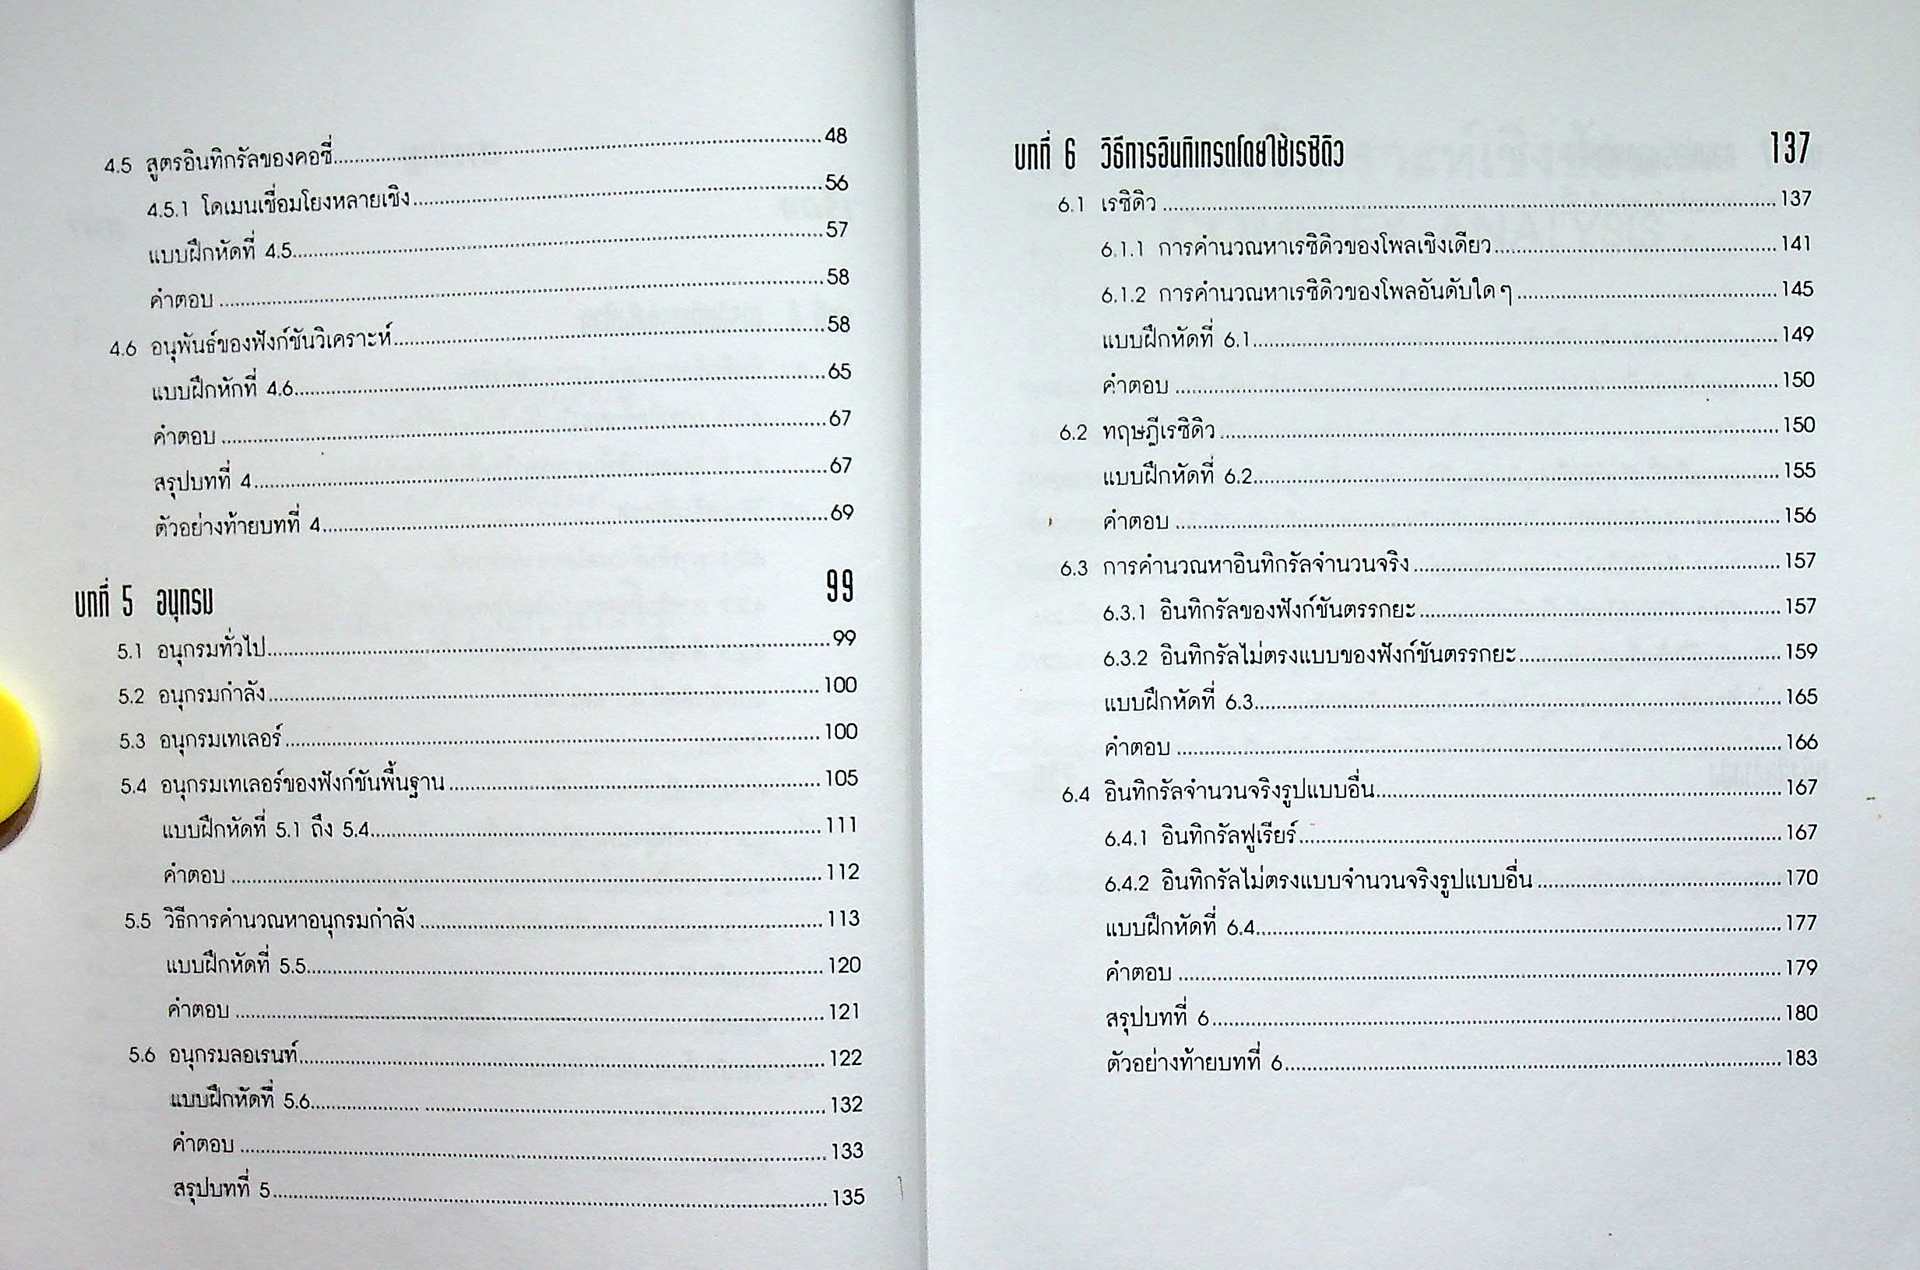 4.5 สูตรอินทิกรัลของคอชี่ 48
4.5.1 โดเมนเชื่อมโยงหลายเชิง 56
แบบฝึกหัดที่ 4.5 57
คำตอบ 58
4.6 อนุพันธ์ของฟังก์ชันวิเคราะห์ 58
แบบฝึกหักที่ 4.6 65
คำตอบ 67
สรุปบทที่ 4 67
ตัวอย่างท้ายบทที่ 4 69
บทที่ 5 อนุกรม 99
5.1 อนุกรมทั่วไป 99
5.2 อนุกรมกำลัง 100
5.3 อนุกรมเทเลอร์ 100
5.4 อนุกรมเทเลอร์ของฟังก์ชันพื้นฐาน 105
แบบฝึกหัดที่ 5.1 ถึง 5.4 111
คำตอบ 112
5.5 วิธีการคำนวณหาอนุกรมกำลัง 113
แบบฝึกหัดที่ 5.5 120
คำตอบ 121
5.6 อนุกรมลอเรนท์ 122
แบบฝึกหัดที่ 5.6 132
คำตอบ 133
สรุปบทที่ 5 135
บทที่ 6 วิธีการอินทิเกรตโดยใช้เรซิดิว 137
6.1 เรซิดิว 137
6.1.1 การคำนวณหาเรซิดิวของโพลเชิงเดียว 141
6.1.2 การคำนวณหาเรซิดิวของโพลอันดับใดๆ 145
แบบฝึกหัดที่ 6.1 149
คำตอบ 150
6.2 ทฤษฎีเรซิดิว 150
แบบฝึกหัดที่ 6.2 155
คำตอบ 156
6.3 การคำนวณหาอินทิกรัลจำนวนจริง 157
6.3.1 อินทิกรัลของฟังก์ชันตรรกยะ 157
6.3.2 อินทิกรัลไม่ตรงแบบของฟังก์ชันตรรกยะ 159
แบบฝึกหัดที่ 6.3 165
คำตอบ 166
6.4 อินทิกรัลจำนวนจริงรูปแบบอื่น 167
6.4.1 อินทิกรัลฟูเรียร์ 167
6.4.2 อินทิกรัลไม่ตรงแบบจำนวนจริงรูปแบบอื่น 170
แบบฝึกหัดที่ 6.4 177
คำตอบ 179
สรุปบทที่ 6 180
ตัวอย่างท้ายบทที่ 6 183